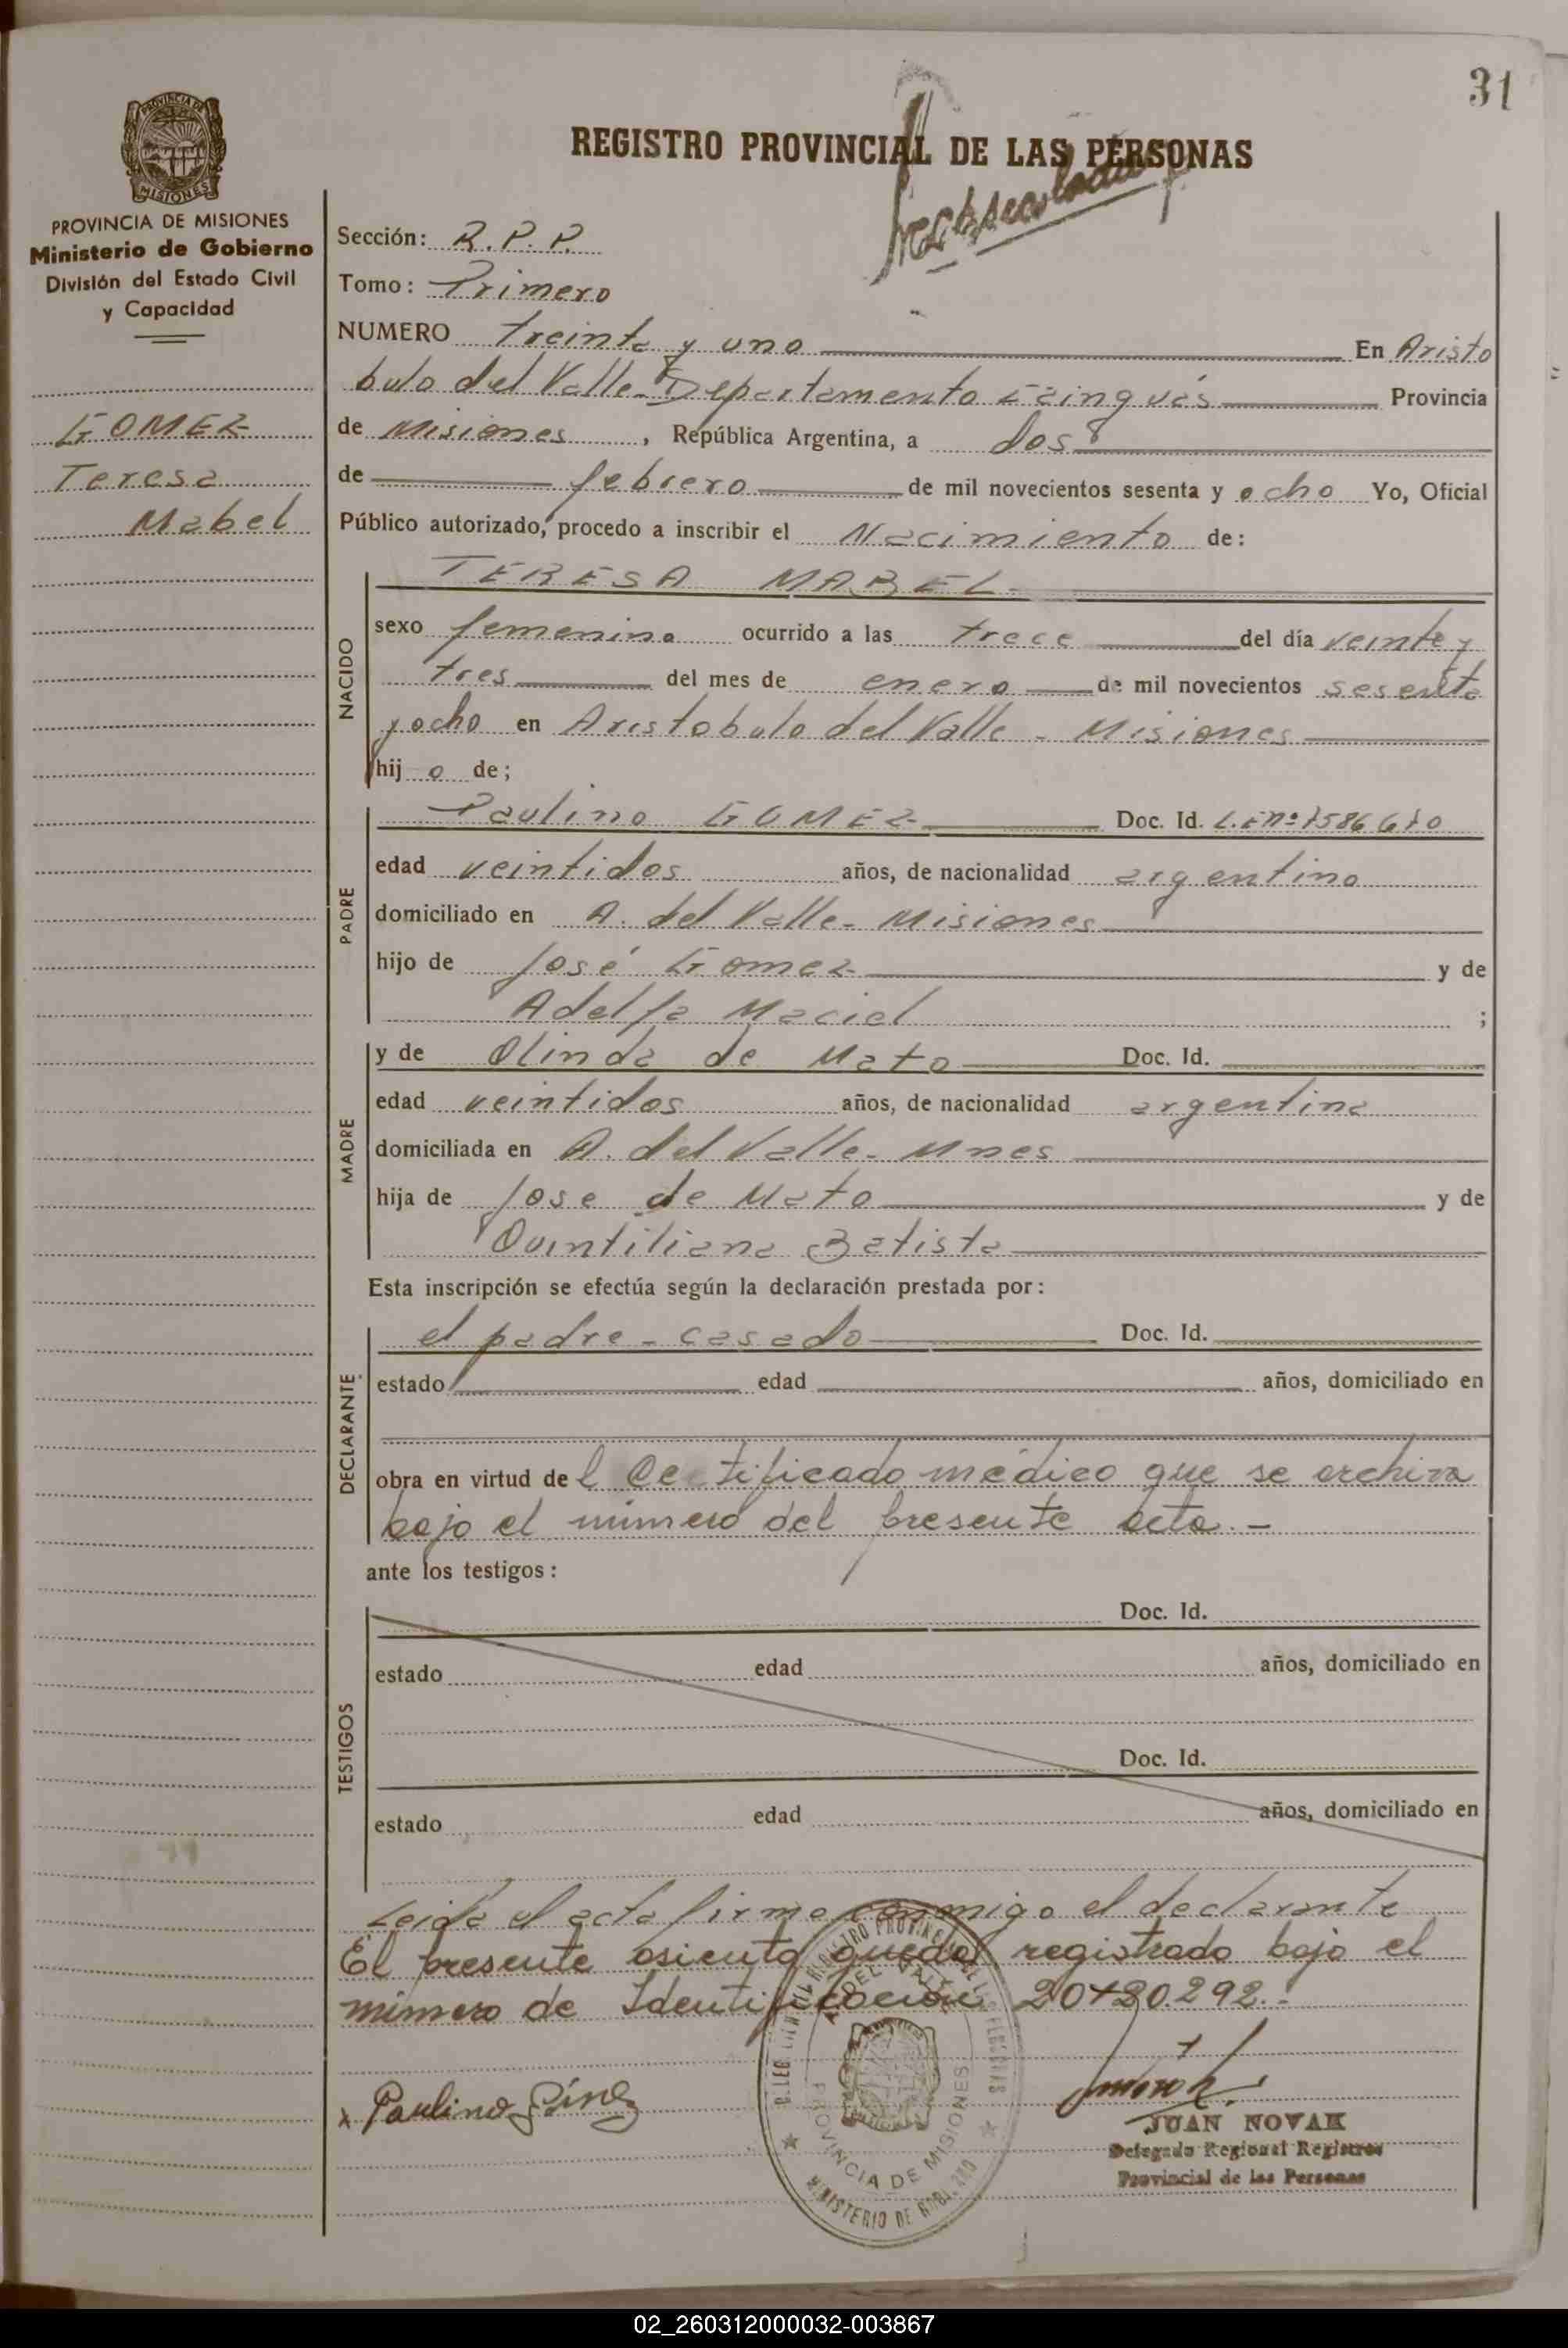 31
PROVINCIA DE
MISIONES
PROVINCIA DE MISIONES
Ministerio de Gobierno
División del Estado Civil
y Capacidad
GOMEZ
Teresa
Mabel
REGISTRO PROVINCIAL DE LAS PERSONAS
Sección: R.P.P.
Tomo: Primero
NUMERO treinta y uno En Aristo
bulo del Valle - Departamento Cainguás Provincia
de Misiones, República Argentina, a dos
de febrero de mil novecientos sesenta y ocho Yo, Oficial
Público autorizado, procedo a inscribir el Nacimiento de:
NACIDO
TERESA MABEL
sexo femenino ocurrido a las trece del día veinte y
tres del mes de enero de mil novecientos sesenta
y ocho en Aristobulo del Valle - Misiones
hij o de;
PADRE
Paulino GOMEZ Doc. Id. L.E nº
edad veintidos años, de nacionalidad argentino
domiciliado en A. del Valle - Misiones
hijo de José Gomez y de
Adelfa Maciel ;
MADRE
y de Olinda de Mato Doc. Id.
edad veintidos años, de nacionalidad argentina
domiciliada en A. del Valle - Mnes
hija de Jose de Mato y de
Quintiliana Batista
Esta inscripción se efectúa según la declaración prestada por:
DECLARANTE
el padre - casado Doc. Id.
estado edad años, domiciliado en
obra en virtud de l Certificado médico que se archiva
bajo el número del presente acta. -
ante los testigos:
TESTIGOS
Doc. Id.
estado edad años, domiciliado en
Doc. Id.
estado edad años, domiciliado en
Leida el acta firma conmigo el declarante
El presente asiento queda registrado bajo el
número de Identificación 20.
x Paulino
PROVINCIA DE MISIONES
MINISTERIO DE GOBI
JUAN NOVAK
Delegado Regional Registros
Provincial de las Personas
02_260312000032-003867